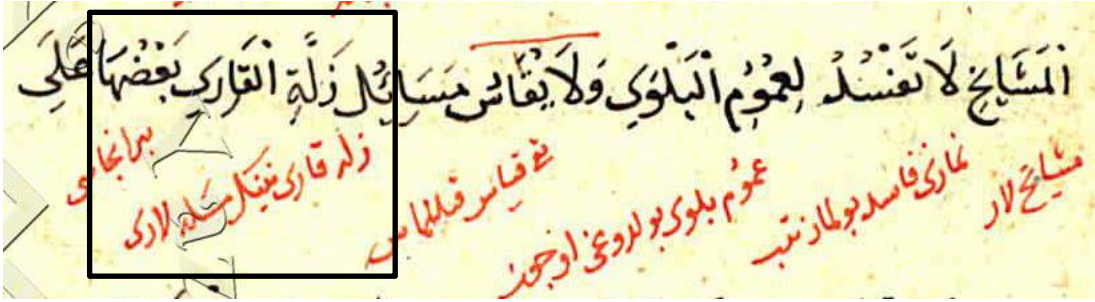 اَلْمَشَايِخِ لَا تَفْسُدُ لِعُمُومِ الْبَلْوَي وَلَا يُقَاسُ مَسَائِلُ زَلَّةِ الْقَارِي بَعْضُهَا عَلَي
مشايخ لار نمازى فاسد بولماز تيب عموم بلوى بولدوغى اوجون قياس قىلىلماس زله قارى نينك مسئله لارى